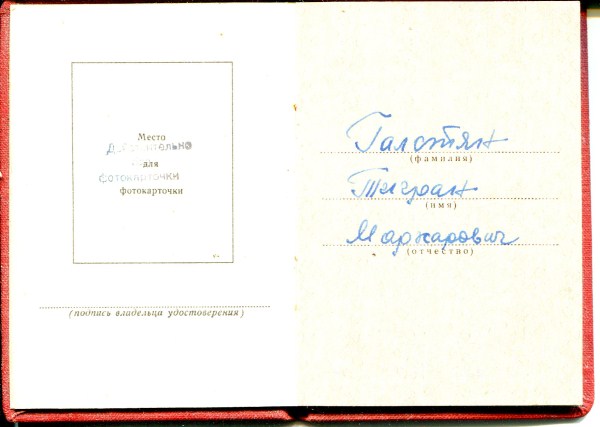 Место
Действительно
для
фотокарточки
фотокарточки
(подпись владельца удостоверения)
Галстян
(фамилия)
Тигран
(имя)
Маркарович
(отчество)